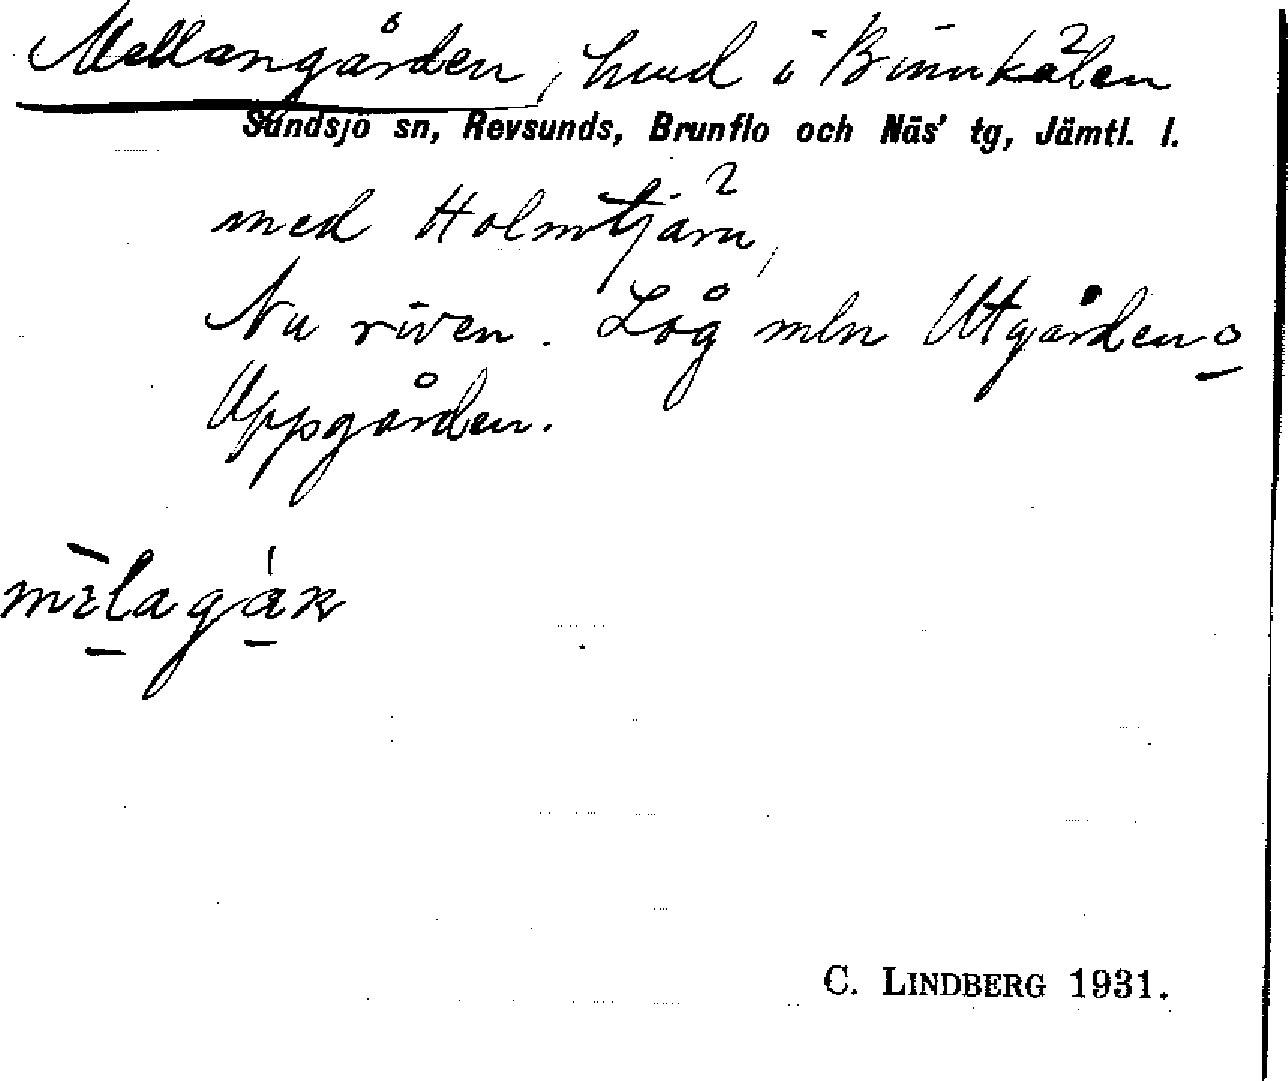 Mellangården, hmd i Binnkälen
Sundsjö sn, Revsunds, Brunflo och Näs' tg, Jämtl. l.
med Holmtjärn,
Nu riven. Låg mln Utgården o
Uppgården.
C. LINDBERG 1931.